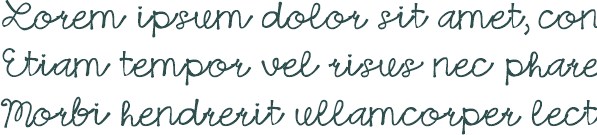 Lorem ipsum dolor sit amet, con
Etiam tempor vel risus nec phare
Morbi hendrerit ullamcorper lect